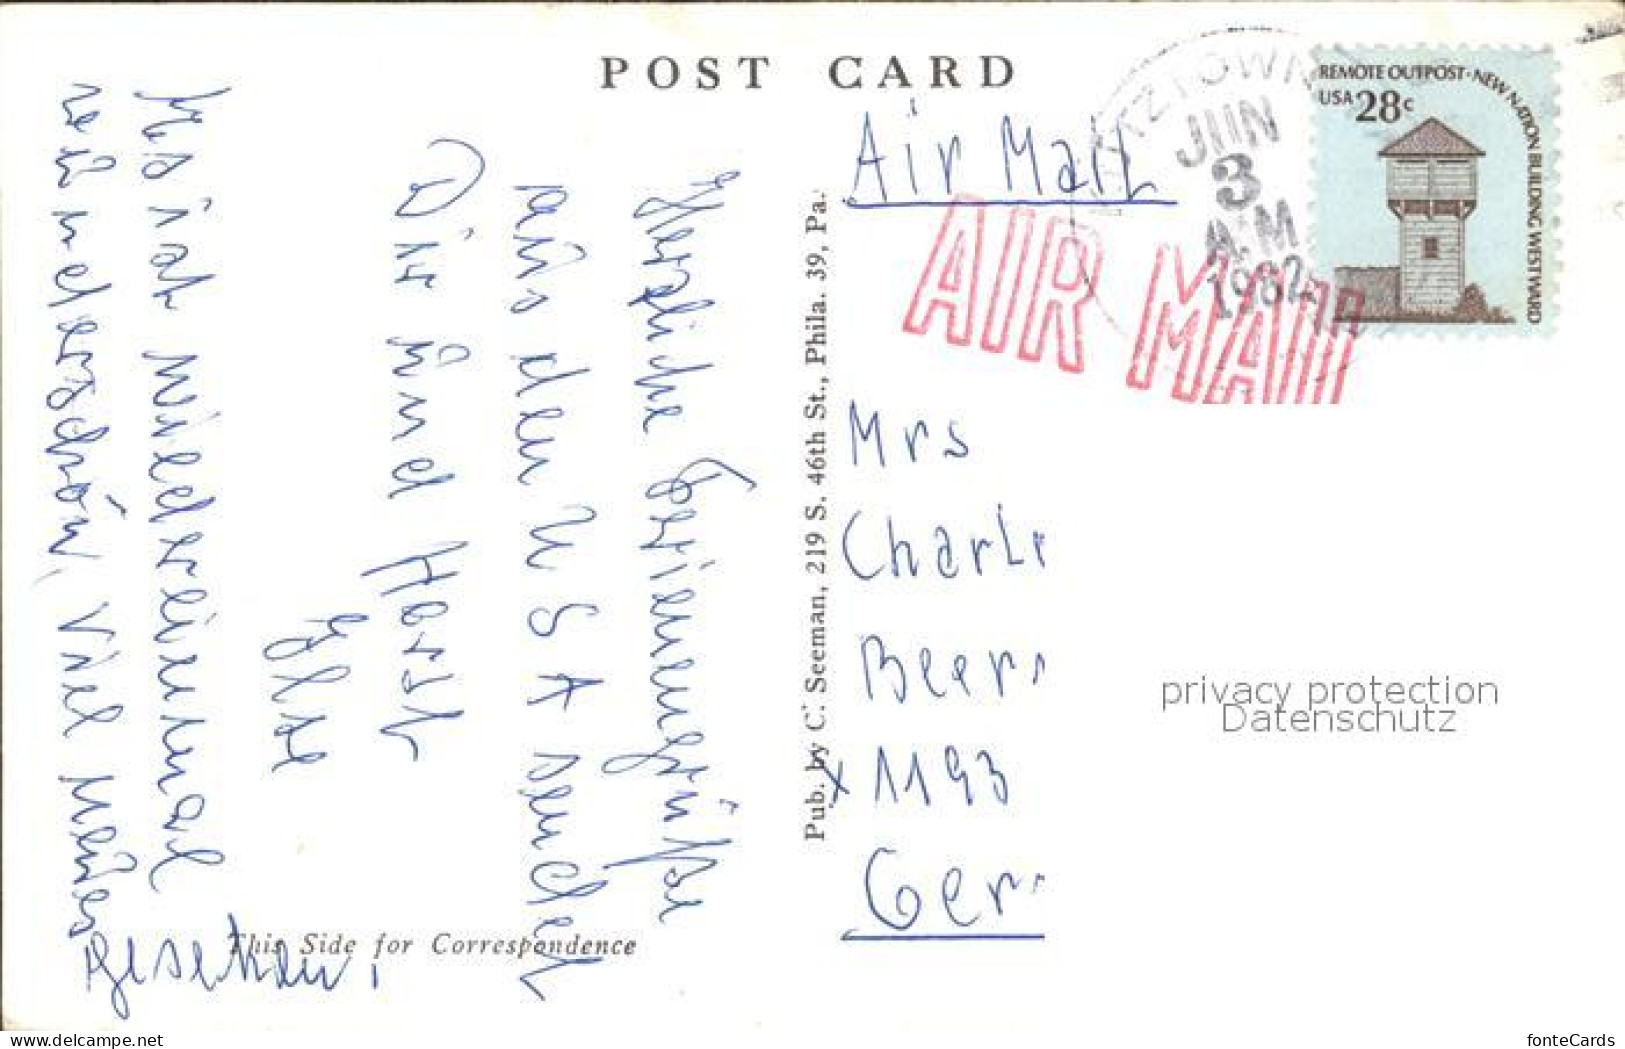 POST CARD
Herzliche Feriengrüße
aus den USA sendet
Dir und Horst
Ilse
Es ist wiedereinmal
wunderschön, viel neues
gesehen.
This Side for Correspondence
Pub. by C. Seeman, 219 S. 46th St., Phila. 39, Pa.
Air Mail
AIR MAIL
TZTOWN
JUN
3
A.M
1982
REMOTE OUTPOST · NEW NATION BUILDING WESTWARD
USA 28c
Mrs
Charl
Beer
x 1193
Ger
privacy protection
Datenschutz
www.delcampe.net
fonteCards